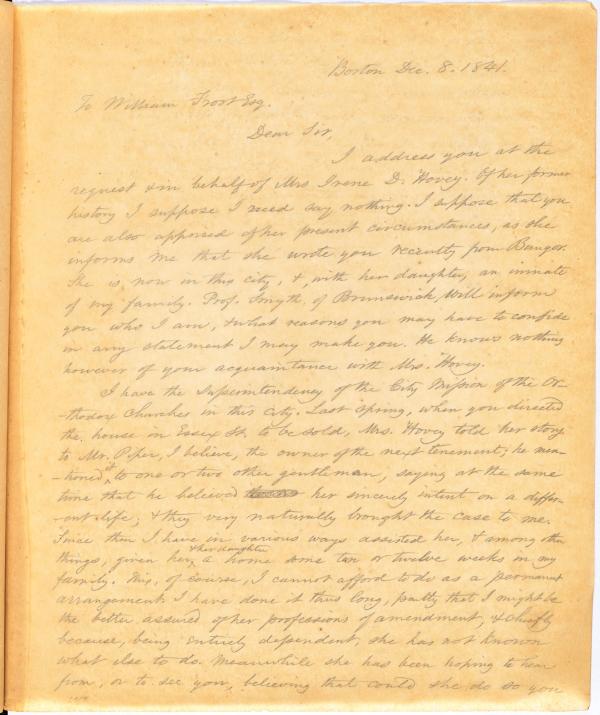 Boston Dec. 8. 1841.
To William Frost Esq.
Dear Sir,
I address you at the
request & in behalf of Mrs Irene D. Hovey. Of her former
history I suppose I need say nothing. I suppose that you
are also apprised of her present circumstances, as she
informs me that she wrote you recently from Bangor.
She is now in this city, &, with her daughter, an inmate
of my family. Prof. Smyth, of Brunswick, will inform
you who I am, & what reasons you may have to confide
in any statement I may make you. He knows nothing
however of your acquaintance with Mrs. Hovey.
I have the Superintendency of the City Mission of the Or-
-thodox Churches in this City. Last Spring, when you directed
the house in Essex St. to be sold, Mrs. Hovey told her story
to Mr. Piper, I believe, the owner of the next tenement; he men-
-tioned it to one or two other gentleman, saying at the same
time that he believed her sincerely intent on a differ-
-ent life; & they very naturally brought the case to me.
Since then I have in various ways assisted her, & among other
things, given her, & her daughter a home some ten or twelve weeks in my
family. This, of course, I cannot afford to do as a permanent
arrangement. I have done it thus long, partly that I might be
the better assured of her professions of amendment, & chiefly
because, being entirely dependent, she has not known
what else to do. Meanwhile she has been hoping to hear
from, or to see you, believing that could she do so you